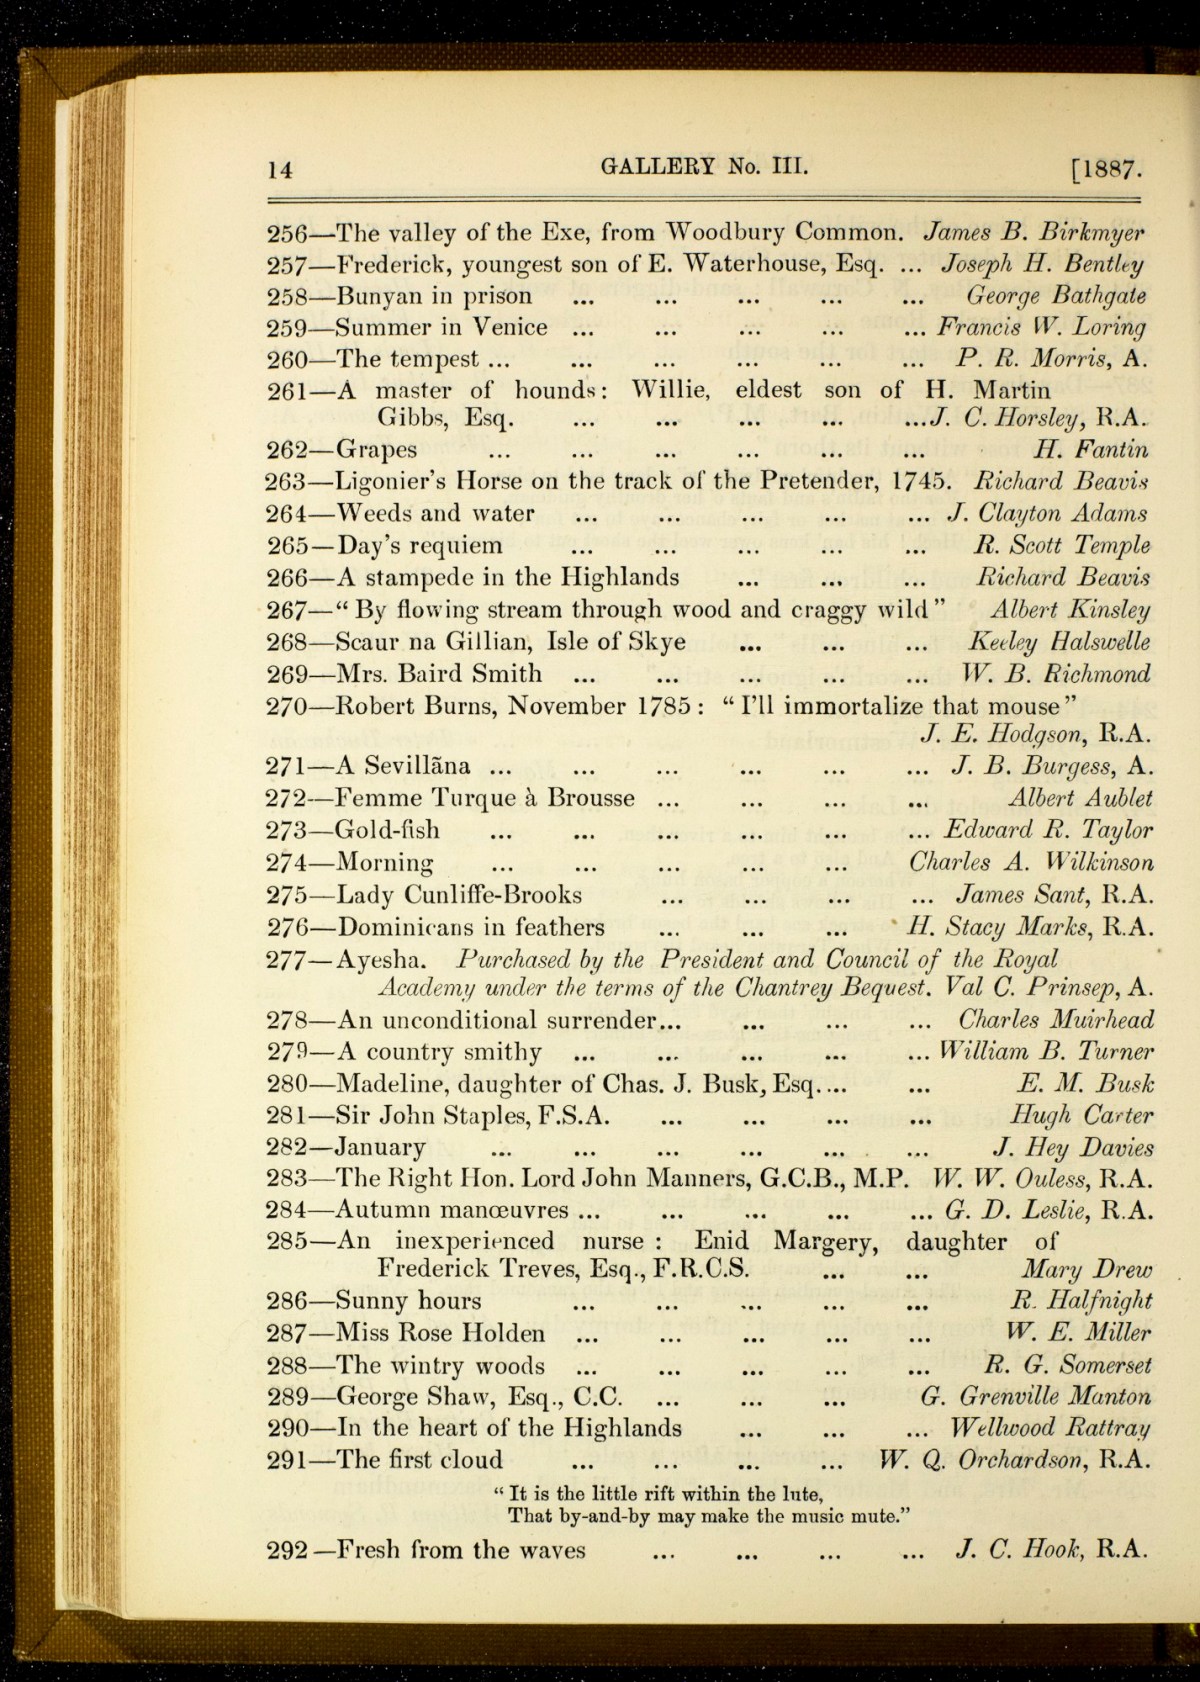 14 GALLERY No. III. [1887.
256—The valley of the Exe, from Woodbury Common. James B. Birkmyer
257—Frederick, youngest son of E. Waterhouse, Esq. ... Joseph H. Bentley
258—Bunyan in prison ... ... ... ... ... George Bathgate
259—Summer in Venice ... ... ... ... ... Francis W. Loring
260—The tempest ... ... ... ... ... ... P. R. Morris, A.
261—A master of hounds: Willie, eldest son of H. Martin
Gibbs, Esq. ... ... ... ... ...J. C. Horsley, R.A.
262—Grapes ... ... ... ... ... ... H. Fantin
263—Ligonier's Horse on the track of the Pretender, 1745. Richard Beavis
264—Weeds and water ... ... ... ... ... J. Clayton Adams
265—Day's requiem ... ... ... ... ... R. Scott Temple
266—A stampede in the Highlands ... ... ... Richard Beavis
267—“By flowing stream through wood and craggy wild” Albert Kinsley
268—Scaur na Gillian, Isle of Skye ... ... ... Keeley Halswelle
269—Mrs. Baird Smith ... ... ... ... ... W. B. Richmond
270—Robert Burns, November 1785: “I'll immortalize that mouse”
J. E. Hodgson, R.A.
271—A Sevillãna ... ... ... ... ... ... J. B. Burgess, A.
272—Femme Turque à Brousse ... ... ... ... Albert Aublet
273—Gold-fish ... ... ... ... ... ... Edward R. Taylor
274—Morning ... ... ... ... ... Charles A. Wilkinson
275—Lady Cunliffe-Brooks ... ... ... ... James Sant, R.A.
276—Dominicans in feathers ... ... ... H. Stacy Marks, R.A.
277—Ayesha. Purchased by the President and Council of the Royal
Academy under the terms of the Chantrey Bequest. Val C. Prinsep, A.
278—An unconditional surrender... ... ... ... Charles Muirhead
279—A country smithy ... ... ... ... ... William B. Turner
280—Madeline, daughter of Chas. J. Busk, Esq.... ... E. M. Busk
281—Sir John Staples, F.S.A. ... ... ... ... Hugh Carter
282—January ... ... ... ... ... ... J. Hey Davies
283—The Right Hon. Lord John Manners, G.C.B., M.P. W. W. Ouless, R.A.
284—Autumn manœuvres ... ... ... ... ... G. D. Leslie, R.A.
285—An inexperienced nurse : Enid Margery, daughter of
Frederick Treves, Esq., F.R.C.S. ... ... Mary Drew
286—Sunny hours ... ... ... ... ... R. Halfnight
287—Miss Rose Holden ... ... ... ... ... W. E. Miller
288—The wintry woods ... ... ... ... ... R. G. Somerset
289—George Shaw, Esq., C.C. ... ... ... G. Grenville Manton
290—In the heart of the Highlands ... ... ... Wellwood Rattray
291—The first cloud ... ... ... ... W. Q. Orchardson, R.A.
“It is the little rift within the lute,
That by-and-by may make the music mute.”
292—Fresh from the waves ... ... ... ... J. C. Hook, R.A.